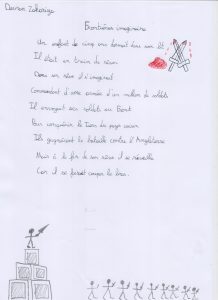 Frontières imaginaires
Un enfant de cinq ans dormait dans son lit
Il était en train de rêver
Dans son rêve il s'imaginait
Commandant d'une armée d'un million de soldats
Il envoyait ses soldats au front
Pour conquérir le Tiers du pays voisin
Ils gagnaient la bataille contre l'Angleterre
Mais à la fin de son rêve il se réveille
Car il se faisait couper le bras.